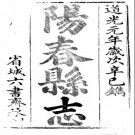 道光元年歲次辛巳鐫
陽春縣志
省城六書齋